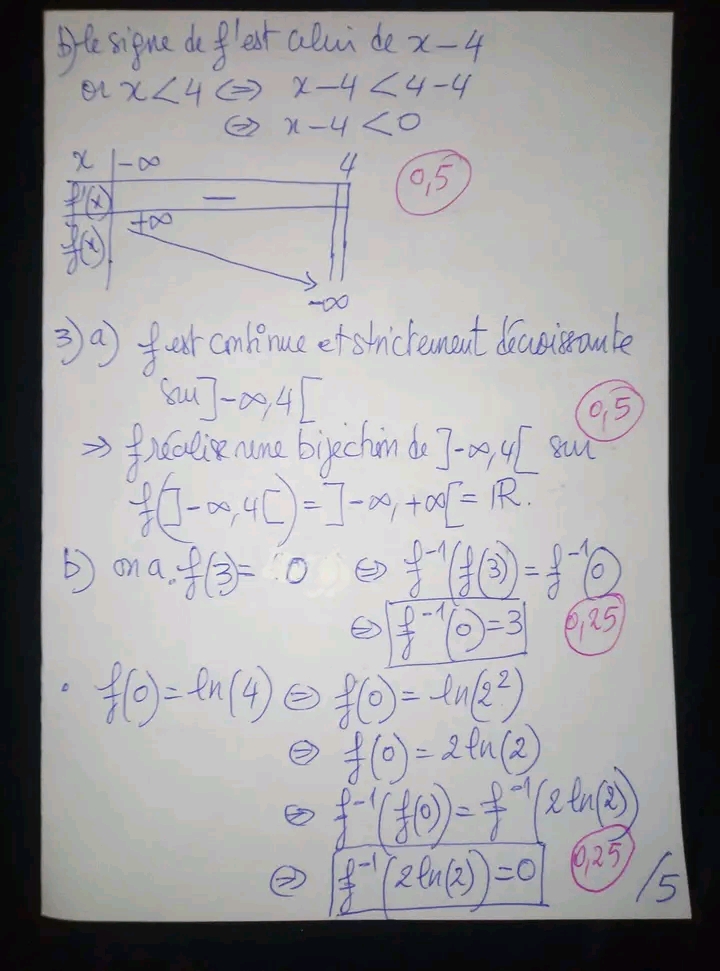 b) le signe de f' est celui de x - 4
or x < 4 ⇔ x - 4 < 4 - 4
⇔ x - 4 < 0
x | -∞ 4
f'(x) −
f(x) +∞
-∞
0,5
3) a) f est continue et strictement décroissante
sur ]-∞, 4[
0,5
⇒ f réalise une bijection de ]-∞, 4[ sur
f(]-∞, 4[) = ]-∞, +∞[ = IR.
b) on a . f(3) = 0 ⇔ f⁻¹(f(3)) = f⁻¹(0)
⇔ f⁻¹(0) = 3
0,25
• f(0) = ln(4) ⇔ f(0) = ln(2²)
⇔ f(0) = 2 ln(2)
⇔ f⁻¹(f(0)) = f⁻¹(2 ln(2))
⇔ f⁻¹(2 ln(2)) = 0
0,25
/5